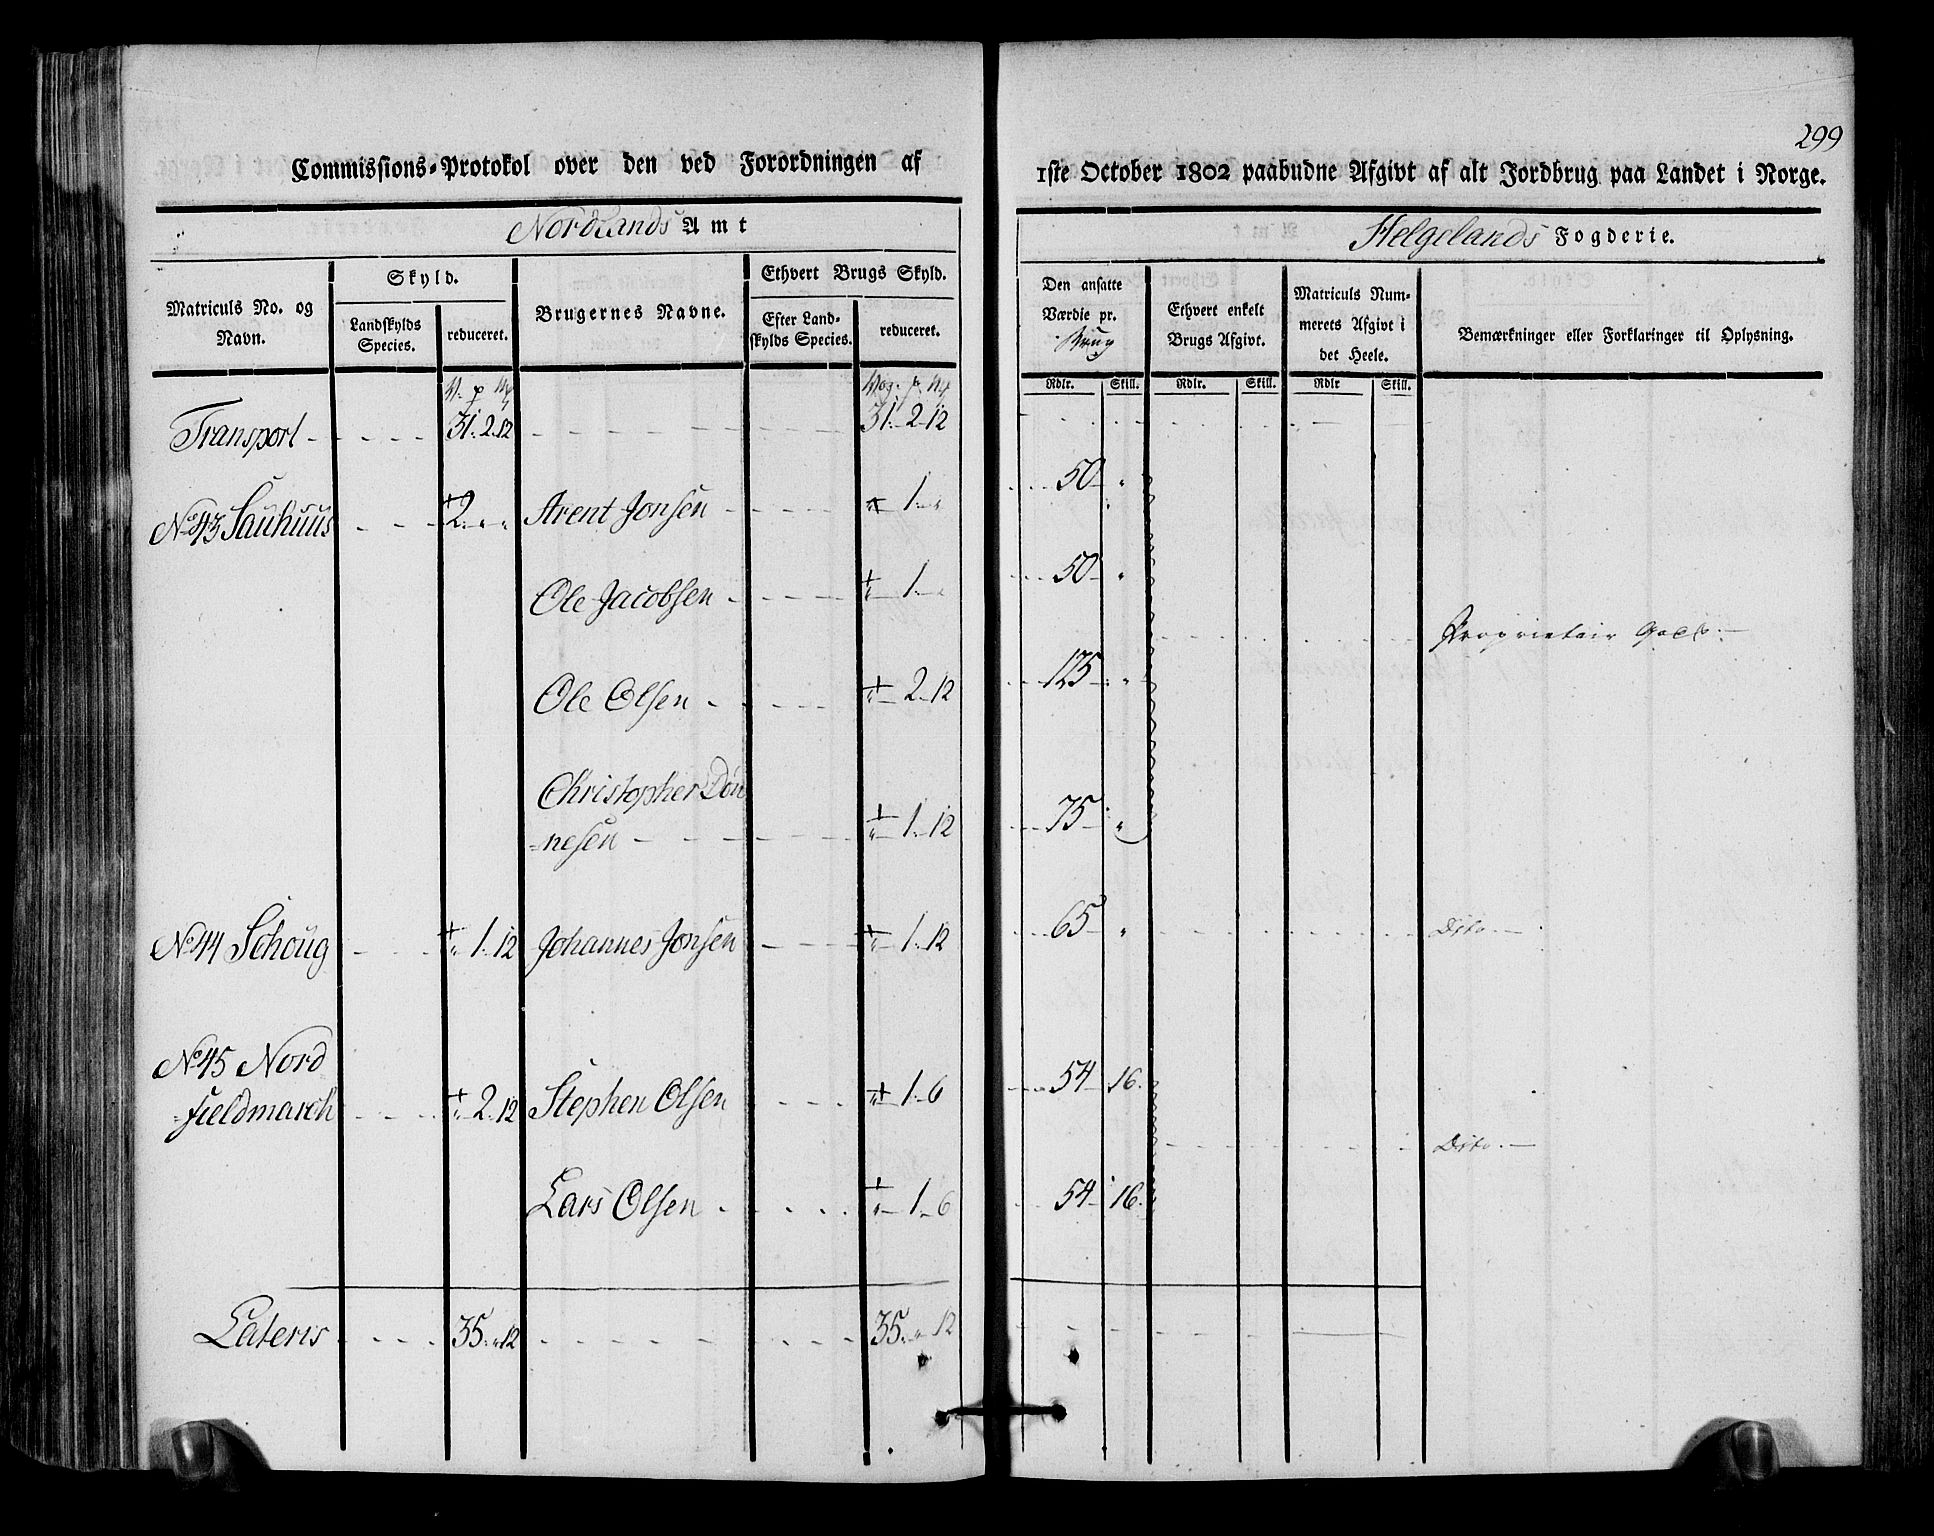 299
Commissions-Protokol over den ved Forordningen af 1ste October 1802 paabudne Afgivt af alt Jordbrug paa Landet i Norge.
Nordlands Amt Helgelands Fogderie.
Matriculs No. og Navn. Skyld. Landskylds Species. reduceret. Brugernes Navne. Ethvert Brugs Skyld. Efter Landskylds Species. reduceret.
Den ansatte Værdie pr. Brug Ethvert enkelt Brugs Afgivt. Matriculs Nummerets Afgivt i det Heele. Bemærkninger eller Forklaringer til Oplysning.
Rdlr. Skill. Rdlr. Skill. Rdlr Skill.
Transport 31. 2. 12 31. 2. 12
No 43 Sauhuus 2. " " Arent Jonsen " 1. " 50 "
Ole Jacobsen " 1. " 50 "
Proprietair
Ole Olsen " 2. 12 125 "
Christopher Dön
=nesen " 1. 12 75 "
No 44 Schoug " 1. 12 Johannes Jonsen " 1. 12 65 " Dito.
No 45 Nord
=fieldmarch " 2. 12 Stephen Olsen " 1. 6 54 16.
Dito.
Lars Olsen " 1. 6 54 16.
Lateris 35. " 12 35. " 12